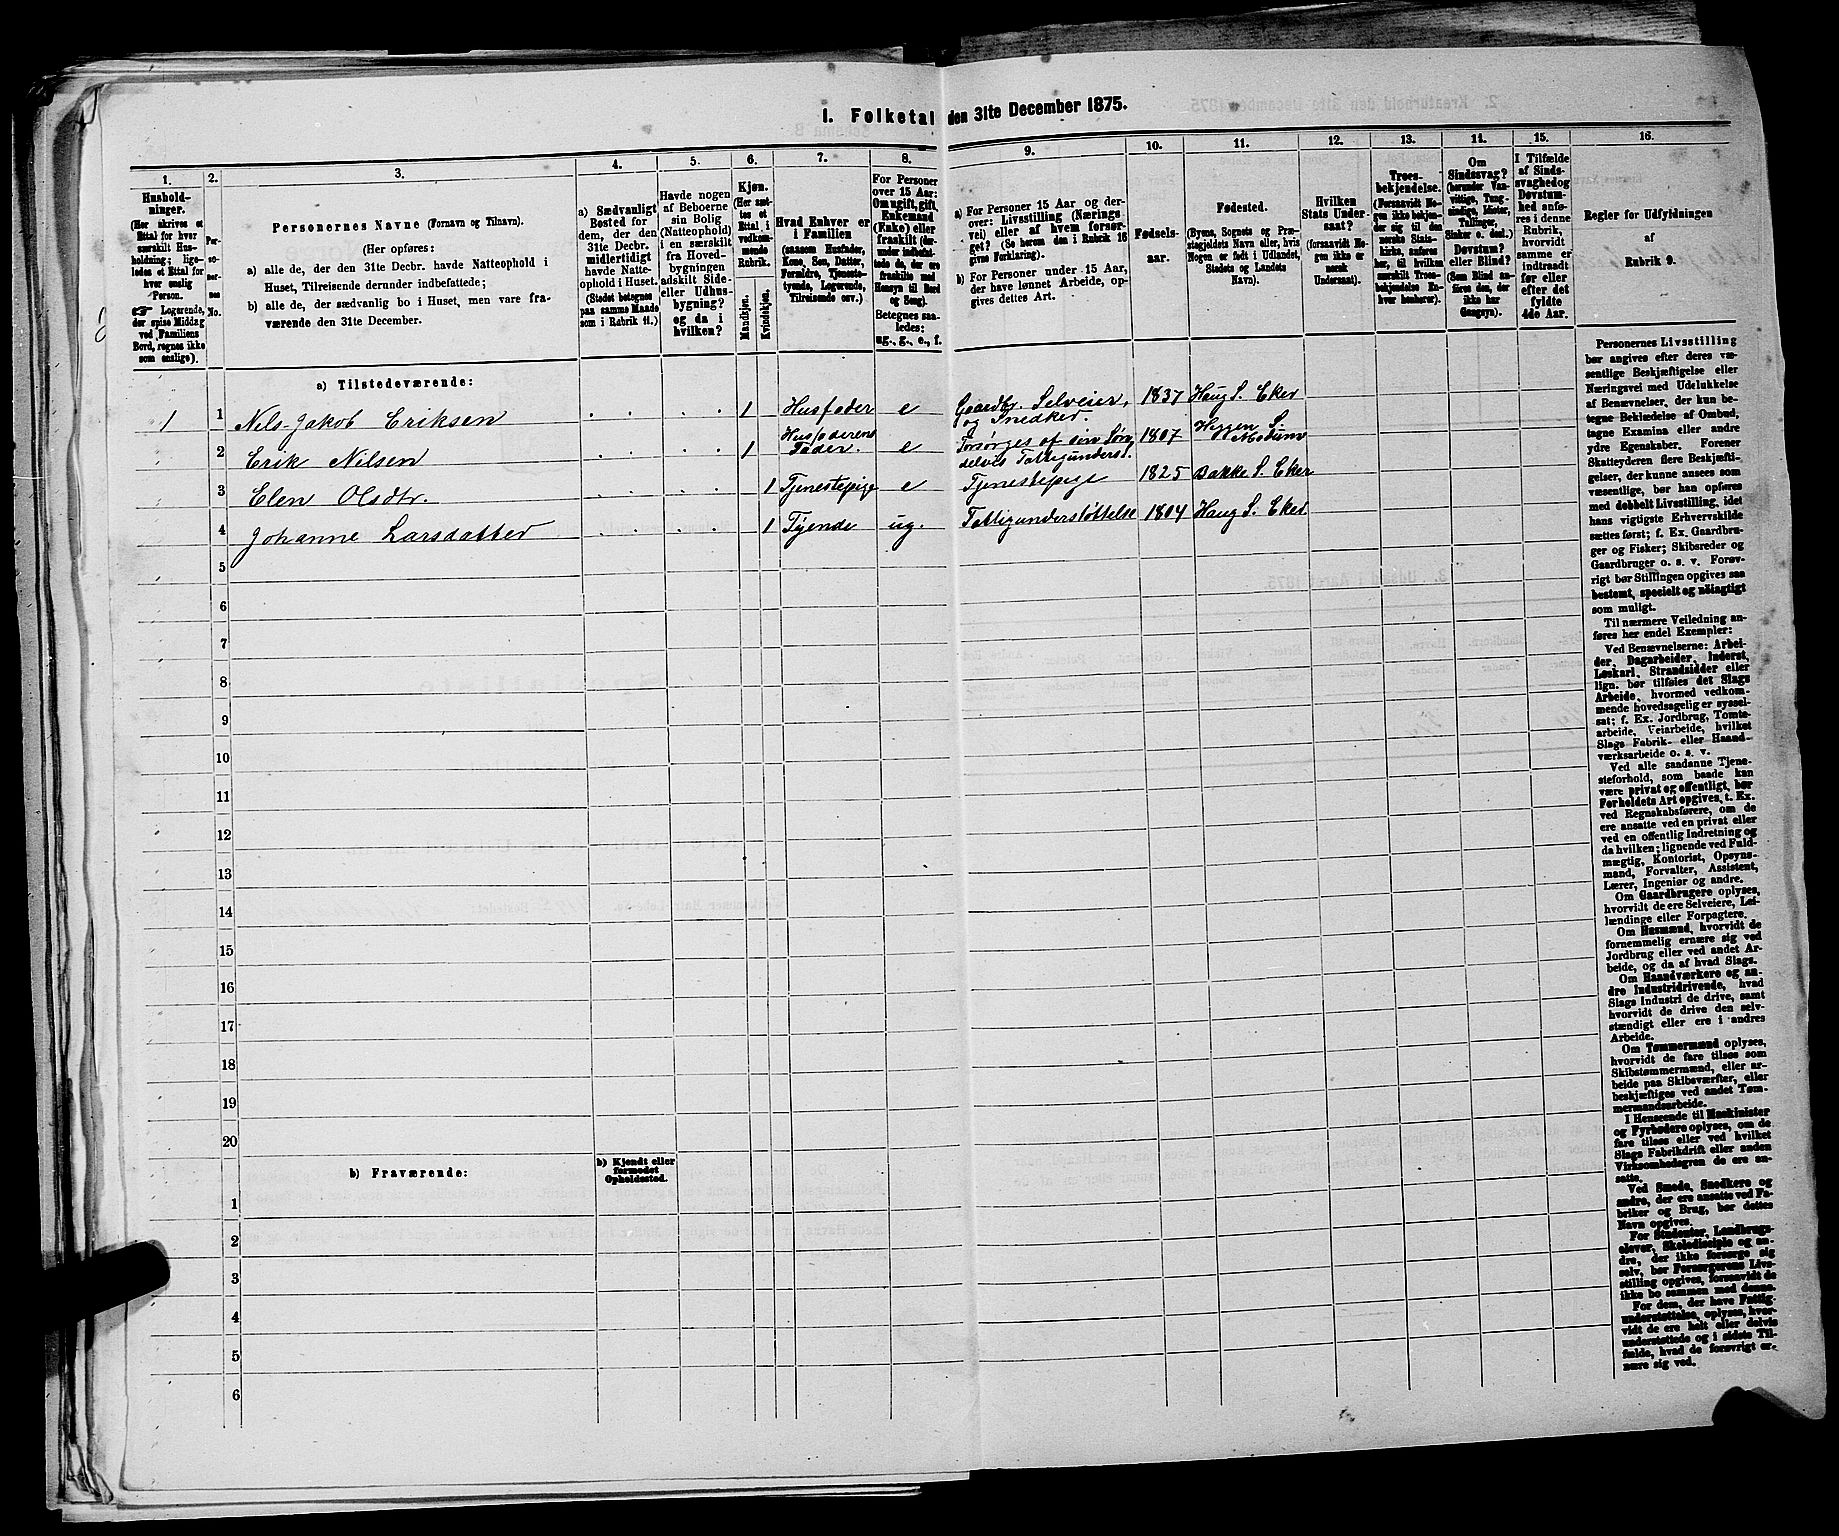 I. Folketal den 31te December 1875.
1.
Husholdninger.
(Her skrives et
Ettal for hver
særskilt Husholdning;
ligeledes et Ettal for
hver enslig
Person.
☞ Logerende,
der spise Middag
ved Familiens
Bord, regnes ikke
som enslige).
2.
Personernes
No.
3.
Personernes Navne (Fornavn og Tilnavn).
(Her opføres:
a) alle de, der den 31te Decbr. havde Natteophold i
Huset, Tilreisende derunder indbefattede;
b) alle de, der sædvanlig bo i Huset, men vare fraværende
den 31te December.
4.
a) Sædvanligt
Bosted for
dem, der den
31te Decbr.
midlertidigt
havde Natteophold
i Huset.
(Stedet betegnes
paa samme Maade
som i Rubrik 11.)
5.
Havde nogen
af Beboerne
sin Bolig
(Natteophold)
i en særskilt
fra Hovedbygningen
adskilt Side- eller Udhusbygning?
og da i
hvilken?
6.
Kjøn.
(Her sættes et
Ettal i
vedkommende
Rubrik.
Mandkjøn.
Kvindekjøn.
7.
Hvad Enhver er
i Familien
(saasom Husfader,
Kone, Søn, Datter,
Forældre, Tjenestetyende, Logerende,
Tilreisende osv.)
8.
For Personer
over 15 Aar:
Om ugift, gift,
Enkemand
(Enke) eller
fraskilt (derunder indbefattede de, der ere
fraskilte med
Hensyn til Bord
og Seng).
Betegnes saaledes:
ug., g., e., f.
9.
a) For Personer 15 Aar og derover: Livsstilling (Næringsvei) eller af hvem forsørget? (Se herom den i Rubrik 16
givne Forklaring).
b) For Personer under 15 Aar,
der have lønnet Arbeide, opgives dettes Art.
10.
Fødselsaar.
11.
Fødested.
(Byens, Sognets og Præstegjeldets Navn eller, hvis
Nogen er født i Udlandet,
Stedets og Landets
Navn).
12.
Hvilken
Stats Undersaat?
(forsaavidt Nogen ikke er
norsk
Undersaat).
13.
Troesbekjendelse.
(Forsaavidt Nogen ikke bekjender sig til den
norske Statskirke, anføres
her, til hvilken
særskilt Troesbekjendelse Enhver henhører).
14.
Om
Sindssvag?
(herunder Vanvittige, Tungsindige, Idioter,
Tullinger,
Sinker o. desl.)
Døvstum?
eller Blind?
(Som Blind anføres den, der
ikke har
Gangsyn).
15.
I Tilfælde
af Sindssvaghed og
Døvstumhed anføres i denne
Rubrik,
hvorvidt
samme er
indtraadt
før eller
efter det
fyldte
4de Aar.
16.
Regler for Udfyldningen
af
Rubrik 9.
a) Tilstedeværende:
1 1 Nels-Jakob Eriksen 1 Husfader e Gaardbr. Selveier, og Snedker 1837 Haug S. Eker
2 Erik Nilsen 1 Husfaderens Fader. e Forsørges af sin Søn, delvis Fattigunderst. 1807 Heggen S. Modum
3 Elen Olsdtr. 1 Tjenestepige e Tjenestepige 1825 Bakke S. Eker
4 Johanne Larsdatter 1 Tyende ug. Fattigunderstøttelse 1804 Haug S. Eker
5
6
7
8
9
10
11
12
13
14
15
16
17
18
19
20
b) Fraværende:
b) Kjendt eller
formodet
Opholdssted.
1
2
3
4
5
6
Personernes Livsstilling
bør angives efter deres væsentlige Beskjæftigelse eller
Næringsvei med Udelukkelse
af Benævnelser, der kun betegne Beklædelse af Ombud,
tagne Examina eller andre
ydre Egenskaber. Forener
Skatteyderen flere Beskjæftigelser, der kunne ansees som
væsentlige, bør han opføres
med dobbelt Livsstilling, idet
hans vigtigste Erhvervskilde
sættes først; f. Ex. Gaardbruger og Fisker; Skibsreder og
Gaardbruger o. s. v. Forøvrigt bør Stillingen opgives saa
bestemt, specielt og nøiagtigt
som muligt.
Til nærmere Veiledning anføres her endel Exempler:
Ved Benævnelserne: Arbeider, Dagarbeider, Inderst,
Løskarl, Strandsidder eller
lign. bør tilføies det Slags
Arbeide, hvormed vedkommende hovedsagelig er sysselsat; f. Ex. Jordbrug, Tomtearbeide, Veiarbeide, hvilket
Slags Fabrik- eller Haandværksarbeide o. s. v.
Ved alle saadanne Tjenesteforhold, som baade kan
være privat og offentligt, bør
Forholdets Art opgives, t. Ex.
ved Regnskabsførere, om de
ere ansatte ved en privat eller
ved en offentlig Indretning og
da hvilken; lignende ved Fuldmægtig, Kontorist, Opsynsmand, Forvalter, Assistent,
Lærer, Ingeniør og andre.
Om Gaardbrugere oplyses,
hvorvidt de ere Selveiere, Leilændinge eller Forpagtere.
Om Husmænd, hvorvidt de
fornemmelig ernære sig ved
Jordbrug eller ved andet Arbeide, og da af hvad Slags.
Om Haandværkere og andre Industridrivende, hvad
Slags Industri de drive, samt
hvorvidt de drive den selvstændigt eller ere i andres
Arbeide.
Om Tømmermænd oplyses,
hvorvidt de fare tilsøs som
Skibstømmermænd, eller arbeide paa Skibsværfter, eller
beskjæftiges ved andet Tømmermandsarbeide.
I Henseende til Maskinister
og Fyrbødere oplyses, om de
fare tilsøs eller ved hvilket
Slags Fabrikdrift eller anden
Virksomhedsgren de ere ansatte.
Ved Smede, Snedkere og
andre, der ere ansatte ved Fabriker og Brug, bør dettes
Navn opgives.
For Studenter, Landbrugselever, Skoledisciple og andre, der ikke forsørge sig
selv, bør Forsørgerens Livsstilling opgives, forsaavidt de
ikke bo sammen med denne.
For dem, der have Fattigunderstøttelse, oplyses, hvorvidt de ere helt eller delvis
understøttede og i sidste Tilfælde, hvad de forøvrigt ernære sig ved.